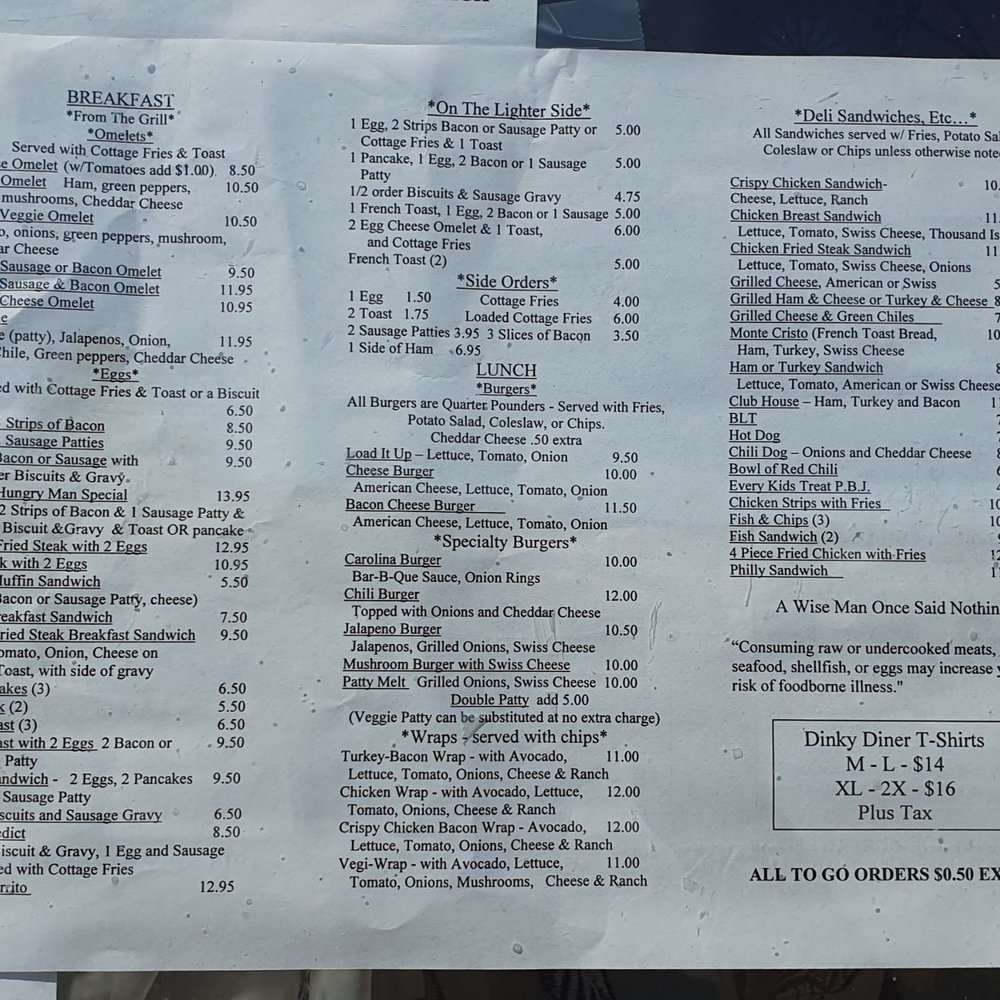 BREAKFAST
*From The Grill*
*Omelets*
Served with Cottage Fries & Toast
Omelet (w/Tomatoes add $1.00) 8.50
Omelet Ham, green peppers, 10.50
mushrooms, Cheddar Cheese
Veggie Omelet 10.50
onions, green peppers, mushroom,
Cheese
Sausage or Bacon Omelet 9.50
Sausage & Bacon Omelet 11.95
Cheese Omelet 10.95
(patty), Jalapenos, Onion, 11.95
Chile, Green peppers, Cheddar Cheese
*Eggs*
with Cottage Fries & Toast or a Biscuit
6.50
Strips of Bacon 8.50
Sausage Patties 9.50
Bacon or Sausage with 9.50
Biscuits & Gravy
Hungry Man Special 13.95
2 Strips of Bacon & 1 Sausage Patty &
Biscuit &Gravy & Toast OR pancake
Fried Steak with 2 Eggs 12.95
with 2 Eggs 10.95
Muffin Sandwich 5.50
Bacon or Sausage Patty, cheese)
Breakfast Sandwich 7.50
Fried Steak Breakfast Sandwich 9.50
Tomato, Onion, Cheese on
Toast, with side of gravy
(3) 6.50
(2) 5.50
(3) 6.50
with 2 Eggs 2 Bacon or 9.50
Patty
- 2 Eggs, 2 Pancakes 9.50
Sausage Patty
Biscuits and Sausage Gravy 6.50
8.50
Biscuit & Gravy, 1 Egg and Sausage
with Cottage Fries
12.95
*On The Lighter Side*
1 Egg, 2 Strips Bacon or Sausage Patty or 5.00
Cottage Fries & 1 Toast
1 Pancake, 1 Egg, 2 Bacon or 1 Sausage 5.00
Patty
1/2 order Biscuits & Sausage Gravy 4.75
1 French Toast, 1 Egg, 2 Bacon or 1 Sausage 5.00
2 Egg Cheese Omelet & 1 Toast, 6.00
and Cottage Fries
French Toast (2) 5.00
*Side Orders*
1 Egg 1.50 Cottage Fries 4.00
2 Toast 1.75 Loaded Cottage Fries 6.00
2 Sausage Patties 3.95 3 Slices of Bacon 3.50
1 Side of Ham 6.95
LUNCH
*Burgers*
All Burgers are Quarter Pounders - Served with Fries,
Potato Salad, Coleslaw, or Chips.
Cheddar Cheese .50 extra
Load It Up – Lettuce, Tomato, Onion 9.50
Cheese Burger 10.00
American Cheese, Lettuce, Tomato, Onion
Bacon Cheese Burger 11.50
American Cheese, Lettuce, Tomato, Onion
*Specialty Burgers*
Carolina Burger 10.00
Bar-B-Que Sauce, Onion Rings
Chili Burger 12.00
Topped with Onions and Cheddar Cheese
Jalapeno Burger 10.50
Jalapenos, Grilled Onions, Swiss Cheese
Mushroom Burger with Swiss Cheese 10.00
Patty Melt Grilled Onions, Swiss Cheese 10.00
Double Patty add 5.00
(Veggie Patty can be substituted at no extra charge)
*Wraps - served with chips*
Turkey-Bacon Wrap - with Avocado, 11.00
Lettuce, Tomato, Onions, Cheese & Ranch
Chicken Wrap - with Avocado, Lettuce, 12.00
Tomato, Onions, Cheese & Ranch
Crispy Chicken Bacon Wrap - Avocado, 12.00
Lettuce, Tomato, Onions, Cheese & Ranch
Vegi-Wrap - with Avocado, Lettuce, 11.00
Tomato, Onions, Mushrooms, Cheese & Ranch
*Deli Sandwiches, Etc…*
All Sandwiches served w/ Fries, Potato
Coleslaw or Chips unless otherwise
Crispy Chicken Sandwich-
Cheese, Lettuce, Ranch
Chicken Breast Sandwich
Lettuce, Tomato, Swiss Cheese, Thousand
Chicken Fried Steak Sandwich
Lettuce, Tomato, Swiss Cheese, Onions
Grilled Cheese, American or Swiss
Grilled Ham & Cheese or Turkey & Cheese
Grilled Cheese & Green Chiles
Monte Cristo (French Toast Bread,
Ham, Turkey, Swiss Cheese
Ham or Turkey Sandwich
Lettuce, Tomato, American or Swiss Cheese
Club House – Ham, Turkey and Bacon
BLT
Hot Dog
Chili Dog – Onions and Cheddar Cheese
Bowl of Red Chili
Every Kids Treat P.B.J.
Chicken Strips with Fries
Fish & Chips (3)
Fish Sandwich (2)
4 Piece Fried Chicken with Fries
Philly Sandwich
A Wise Man Once Said
“Consuming raw or undercooked meats,
seafood, shellfish, or eggs may increase
risk of foodborne illness."
Dinky Diner T-Shirts
M - L - $14
XL - 2X - $16
Plus Tax
ALL TO GO ORDERS $0.50